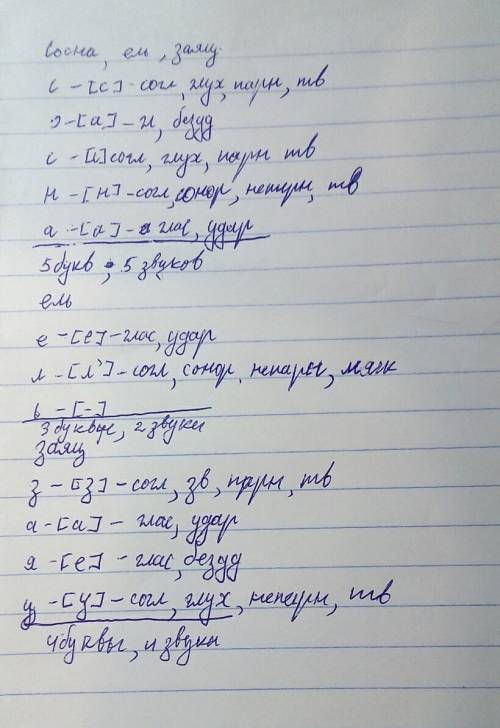 Сосна, ель, заяц.
с - [с] - согл, глух, парн, тв
о - [а] - гл, безуд
с - [с] согл, глух, парн тв
н - [н] - согл, сонор, непарн, тв
а - [а] - глас, удар
5 букв, 5 звуков
ель
е - [е] - глас, удар
л - [л'] - согл, сонор, непарн, мягк
ь - [-]
3 буквы, 2 звуки
Заяц
з - [з] - согл, зв, парн, тв
а - [а] - глас, удар
я - [е] - глас, безуд
ц - [ц] - согл, глух, непарн, тв
4 буквы, 4 звуки